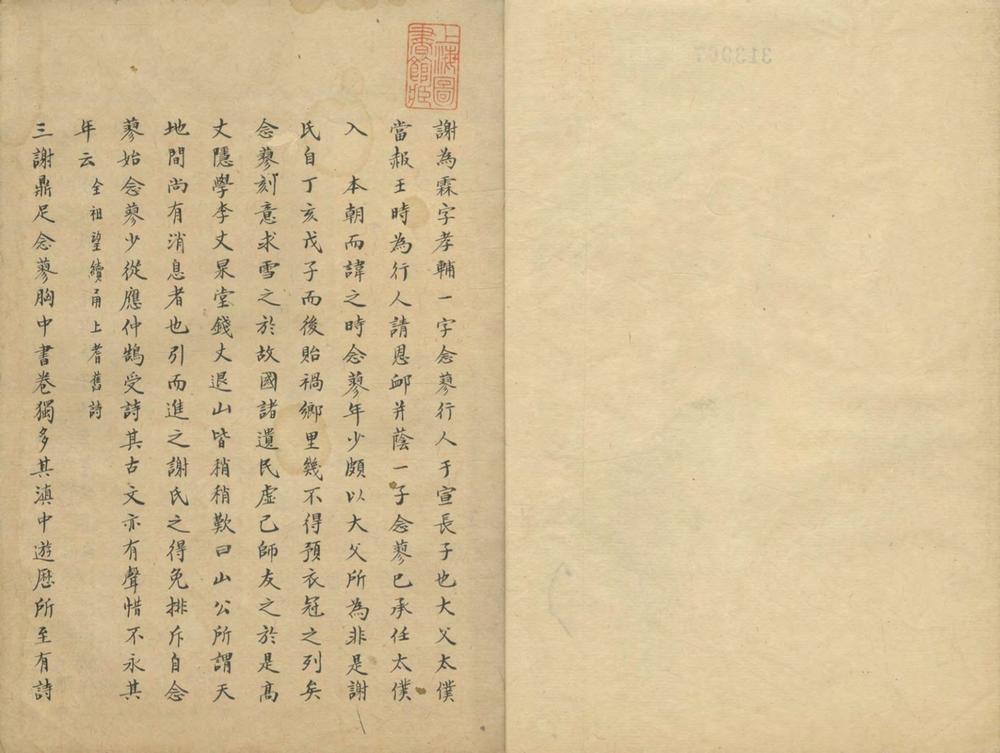 上海圖書館藏
謝為霖字孝輔一字念蓼行人于宣長子也大父太僕
當赧王時為行人請恩卹并蔭一子念蓼已承任太僕
入　本朝而諱之時念蓼年少頗以大父所為非是謝
氏自丁亥戊子而後貽禍鄉里幾不得預衣冠之列矣
念蓼刻意求雪之於故國諸遺民虛己師友之於是高
丈隱學李丈杲堂錢丈退山皆稍稍歎曰山公所謂天
地間尚有消息者也引而進之謝氏之得免排斥自念
蓼始念蓼少從應仲鵠受詩其古文亦有聲惜不永其
年云　全祖望續甬上耆舊詩
三謝鼎足念蓼胸中書卷獨多其滇中遊歷所至有詩
313967